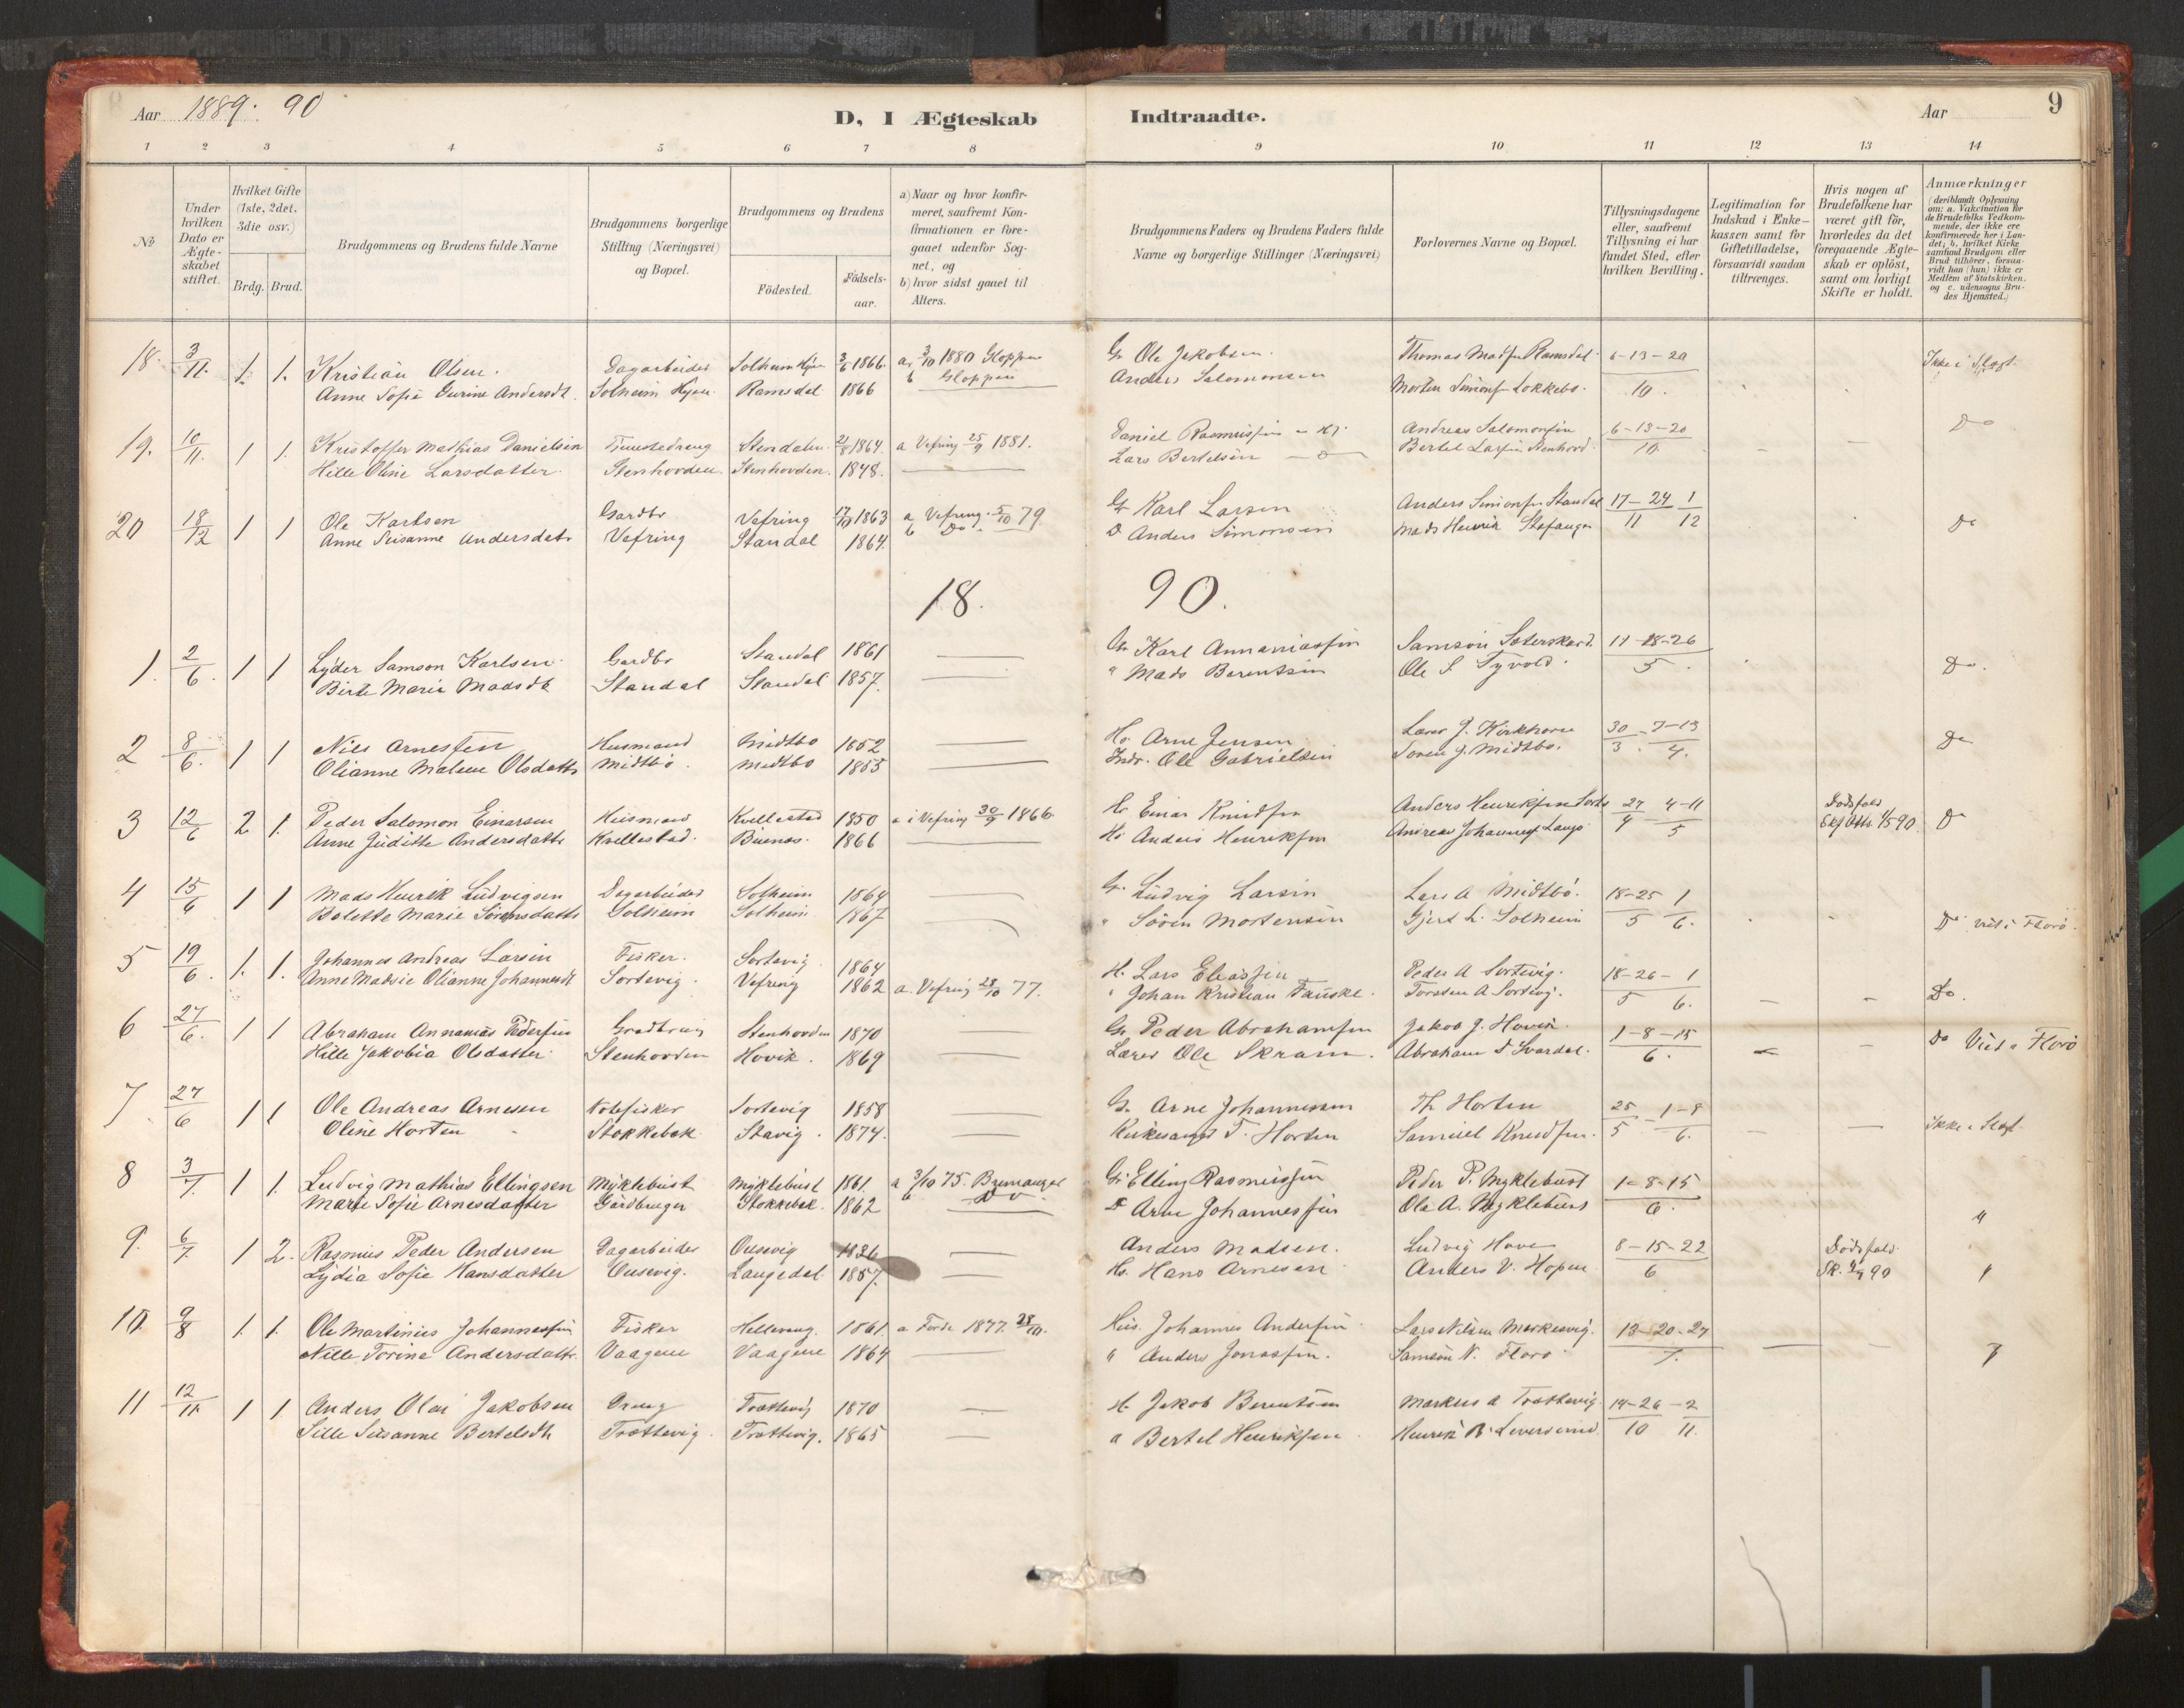 Aar 1889. 90
D, I Ægteskab Indtraadte.
Aar 9
1 2 3 4 5 6 7 8 9 10 11 12 13 14
No
Under hvilken Dato er Ægteskabet stiftet.
Hvilket Gifte (1ste, 2det, 3die osv.)
Brdg. Brud.
Brudgommens og Brudens fulde Navne
Brudgommens borgerlige Stilling (Næringsvei) og Bopæl.
Brudgommens og Brudens
Födested. Födselsaar.
a) Naar og hvor konfirmeret, saafremt Konfirmationen er foregaaet udenfor Sognet, og
b) hvor sidst gaaet til Alters.
Brudgommens Faders og Brudens Faders fulde Navne og borgerlige Stillinger (Næringsvei)
Forlovernes Navne og Bopæl.
Tillysningsdagene eller, saafremt Tillysning ei har fundet Sted, efter hvilken Bevilling.
Legitimation for Indskud i Enkekassen samt for Giftetilladelse, forsaavidt saadan tiltrænges.
Hvis nogen af Brudefolkene har været gift för, hvorledes da det foregaaende Ægteskab er oplöst, samt om lovligt Skifte er holdt.
Anmærkninger (deriblandt Oplysning om: a. Vakcination for de Brudefolks Vedkommende, der ikke ere konfirmerede her i Landet; b. hvilket Kirkesamfund Brudgom eller Brud tilhörer, forsaavidt han (hun) ikke er Medlem af Statskirken. og c. udensogns Brudes Hjemsted.)
18. 3/11. 1. 1. Kristian Olsen. Dagarbeider Solheim Hyen 3/6 1866. a, 3/10 1880 Gloppen G. Ole Jakobsen. Thomas Madsen Ramsdal 6-13-20 Ikke i Slægt.
Anne Sofie Gurine Andersdt. Solheim Hyen. Ramsdal 1866 b Gloppen Anders Salomonsen Morten Simonsen Løkkebø. 10.
19. 10/11. 1 1. Kristoffer Mathias Danielsen Tjenestedreng Stendalen 21/8 1864. a Vefring 25/9 1881. Daniel Rasmussen Andreas Salomonsen 6-13-20 Do
Hille Oline Larsdatter. Stenhovden. Stenhovden. 1848. Lars Bertelsen Bertel Larsen Stenhovd. 10.
20 18/12 1 1 Ole Karlsen Gardbr Vefring 1863 a Vefring 5/10 79 G. Karl Larsen Anders Simonsen Standal 17-24/11 1/12
Anne Susanne Andersdat. Vefring Standal 1864. b Do D Anders Simonsen Mads Henrik Do
18. 90.
1. 2/6. 1 1 Lyder Samson Karlsen. Gardbr Standal 1861 G. Karl Annaniassen Samson Sæterskard. 11-18-26
Birte Marie Madsdt Standal Standal 1857. " Mads Berentsen Ole S Tyvold. 5. Do.
2 8/6. 1 1 Nils Arnessen Husmand Midtbø 1852 H. Arne Jensen Lærer J. Kirkhorn 30/3 - 7-13/4. Do
Olianne Malene Olsdattr Midtbø. Midtbø 1855 Indr. Ole Gabrielsen Søren J. Midtbø.
3 12/6 2 1. Peder Salomon Einarsen Husmand Kvellestad 1850 a i Vefring 30/9 1866. H. Einar Knudsen Anders Henriksen 27/4 4-11/5 Dødsfald
Anne Juditte Andersdattr Kvellestad. Buenes. 1866 H. Anders Henriksen Andreas Johannes Langø Skf. 90. D
4 15/6 1 1 Mads Henrik Ludvigsen Dagarbeider Solheim 1864 G. Ludvig Larsen Lars A Midtbø. 18-25/5 1/6.
Bolette Marie Sørensdattr Solheim Solheim 1867 " Søren Mortensen Gjert L. Solheim D. viet i Florø.
5 19/6. 1. 1. Johannes Andreas Larsen Fisker. Sortevig 1864 H. Lars Eliassen Peder A Sortevig. 18-26/5 - 1/6.
Anne Madsie Olianne Johannesdt Sortevig. Vefring 1862 a. Vefring 28/10 77. " Johan Kristian Fauske. Torsten A Sortevig. Do.
6 27/6. 1 1 Abraham Annanias Pedersen Gardbrug Stenhovden 1870 G. Peder Abrahamsen Jakob J. Hovik. 1-8-15
Hille Jakobia Olsdatter. Stenhovden Hovik. 1869 Lærer Ole Skram. Abraham D Svardal. 6. Do Viet i Florø
7. 27/6 1 1 Ole Andreas Arnesen Notefisker Sortevig 1858 G. Arne Johannessen Th Horten 25/5 - 1-8/6.
Oline Horten Stokkebak Stavig. 1874. Kirkesanger T. Horten Samuel Knudsen. Ikke i Slægt
8 3/7. 1 1. Ludvig Mathias Ellingsen Myklebust Myklebust 1861. a 3/10 75. Bremanger G. Elling Rasmussen Peder P. Myklebust 1-8-15
Marte Sofie Arnesdatter Gårdbruger Stokkebak. 1862 b Do D Arne Johannessen Ole A. Myklebust 6. "
9. 6/7. 1 2. Rasmus Peder Andersen Dagarbeider Ousevig 1836 Anders Madsen. Ludvig Hove 8-15-22 Dødsfald.
Lydia Sofie Hansdatter Ousevig. Langedal 1857. H. Hans Arnesen Anders V. Hopen 6 Sk. 90 "
10. 9/8 1. 1. Ole Martinius Johannessen Fisker Hellevang. 1861. a Førde 1877. Hus. Johannes Andersen Lars Nilsen Merkesvig. 13-20-27
Nille Torine Andersdattr. Vaagene Vaagene 1864 " Anders Jonassen. Samson N. Florø 7.
11 12/11. 1 1. Anders Olai Jakobsen Dreng Trættevig 1870 H. Jakob Berentsen Markus A Trættevig. 19-26 - 2
Sille Susanne Bertelsdt. Trættevig. Trættevig. 1865 " Bertel Henriksen Henrik B. 10 11.